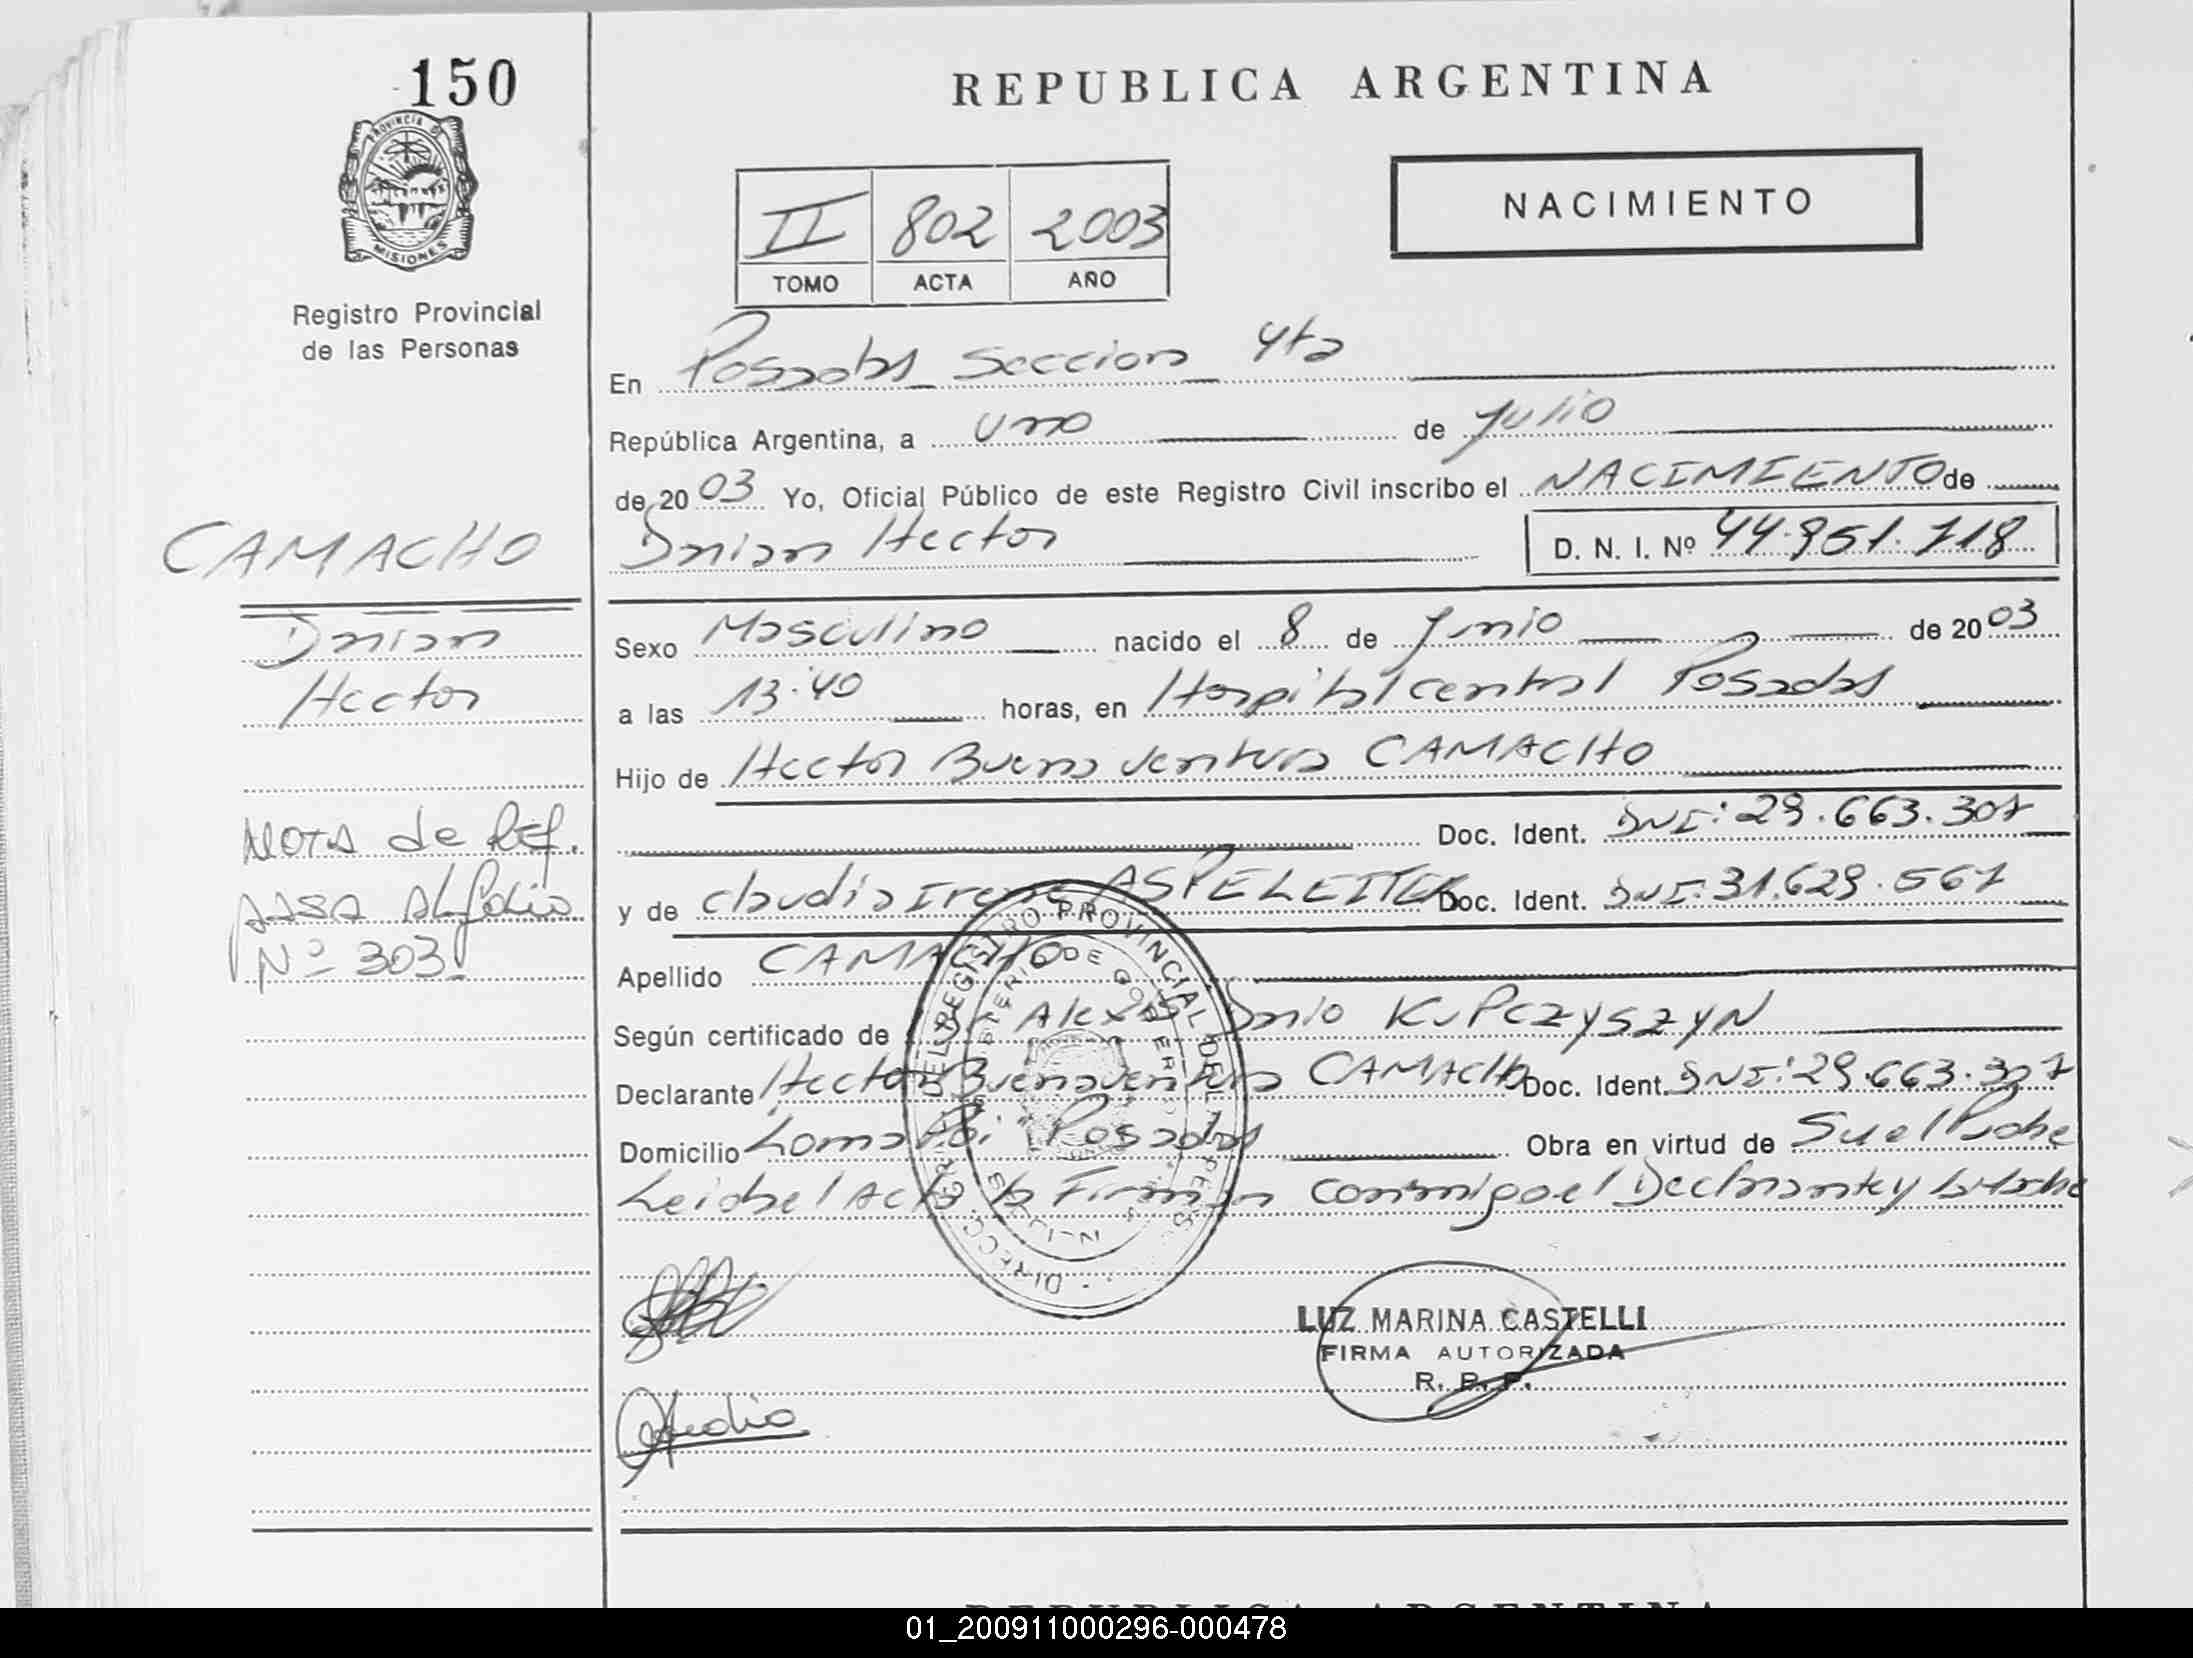 150
PROVINCIA DE
MISIONES
Registro Provincial
de las Personas
REPUBLICA ARGENTINA
NACIMIENTO
II 802 2003
TOMO ACTA AÑO
En Posadas Seccion 4ta
República Argentina, a uno de Julio
de 2003 Yo, Oficial Público de este Registro Civil inscribo el NACIMIENTO de
Darian Hector D. N. I. Nº 44.951.718
CAMACHO
Darian
Hector
Sexo Masculino nacido el 8 de Junio de 2003
a las 13:40 horas, en Hospital central Posadas
Hijo de Hector Buenaventura CAMACHO
Doc. Ident. DNI: 29.663.307
y de Claudia Irene ASPELEITER Doc. Ident. DNI: 31.629.567
NOTA de REf.
PASA AL folio
Nº 303
Apellido CAMACHO
Según certificado de Dr Alexis Dario KUPCZYSZYN
Declarante Hector Buenaventura CAMACHO Doc. Ident. DNI: 29.663.307
Domicilio Loma Poi Posadas Obra en virtud de Ser el Padre
Leida el Acta la Firman conmigo el Declarante y la Madre
DIRECCION GRAL. DEL REGISTRO PROVINCIAL DE LAS PERS
MINISTERIO DE GOBIERNO
Claudia
LUZ MARINA CASTELLI
FIRMA AUTORIZADA
R. P. P.
REPUBLICA ARGENTINA
01_200911000296-000478